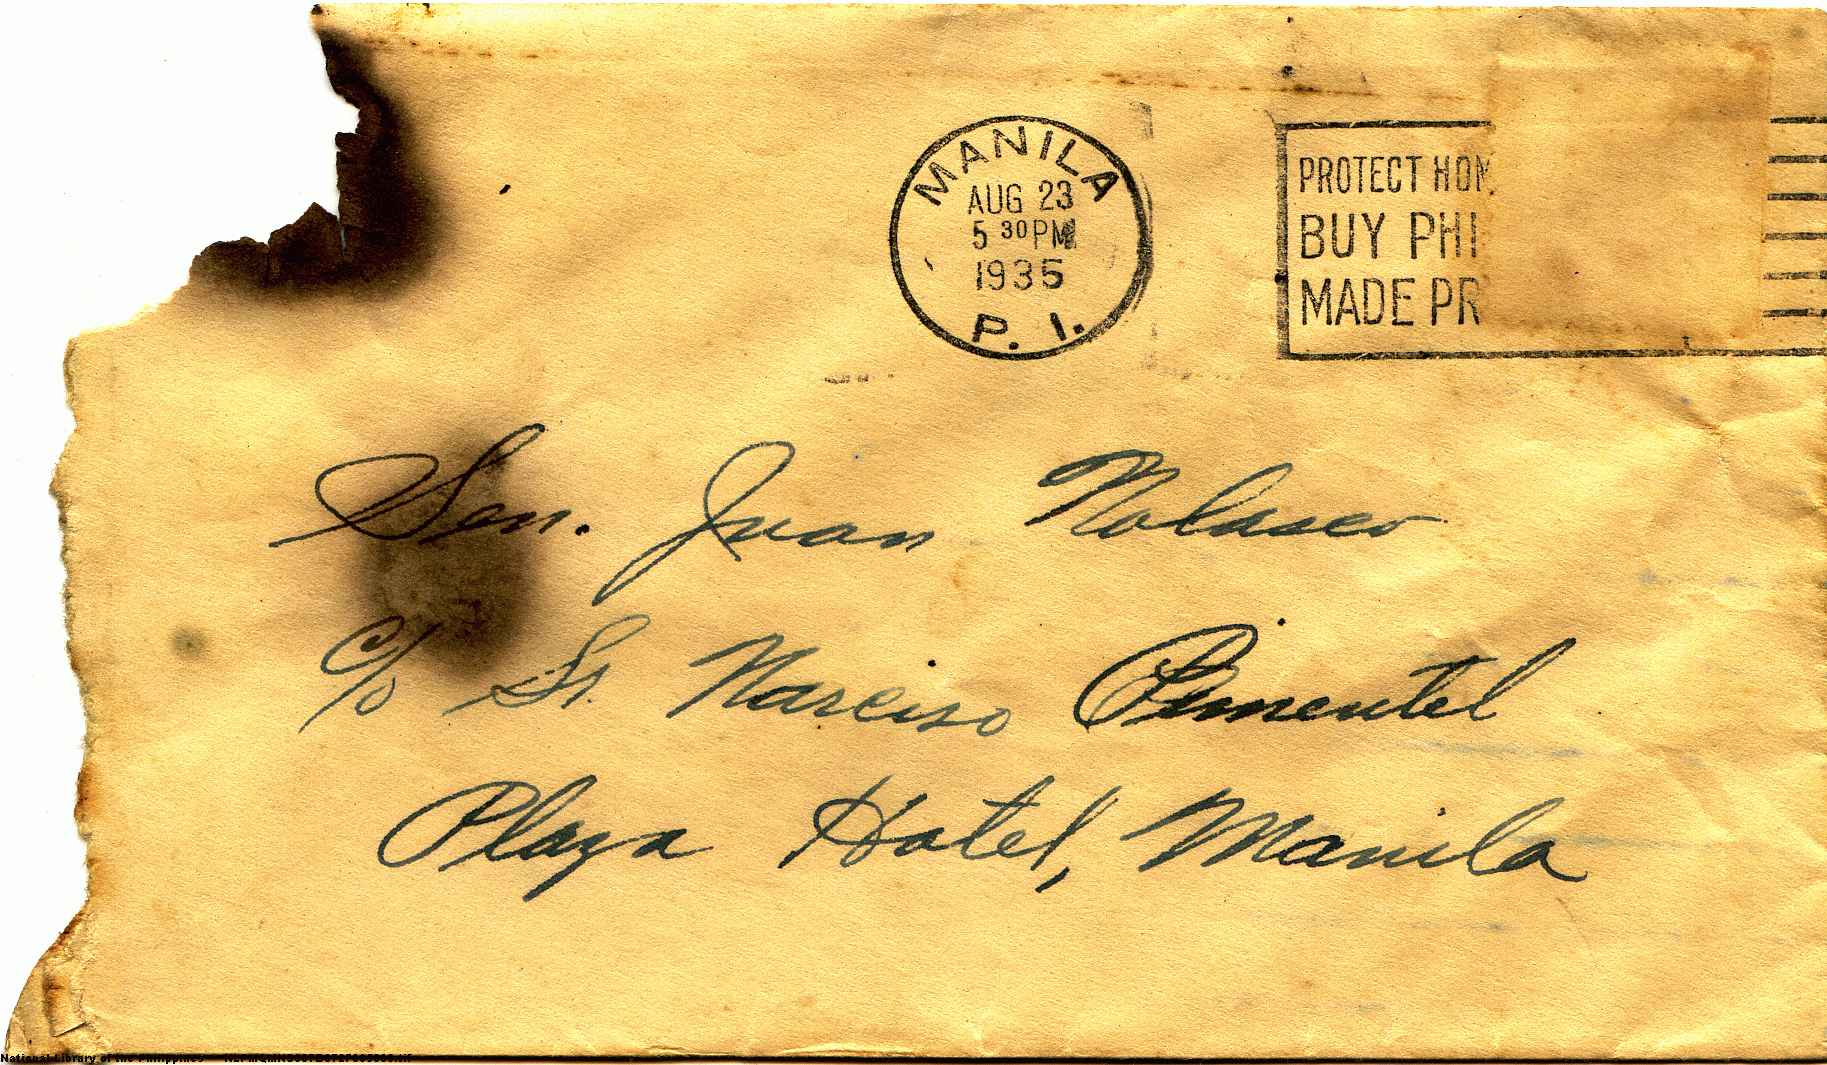 MANILA
AUG 23
5 30 PM
1935
P. I.
PROTECT HOM
BUY PHI
MADE PR
Sen. Juan Nolasco
c/o Sr. Narciso Pimentel
Plaza Hotel, Manila
National Library of the Philippines